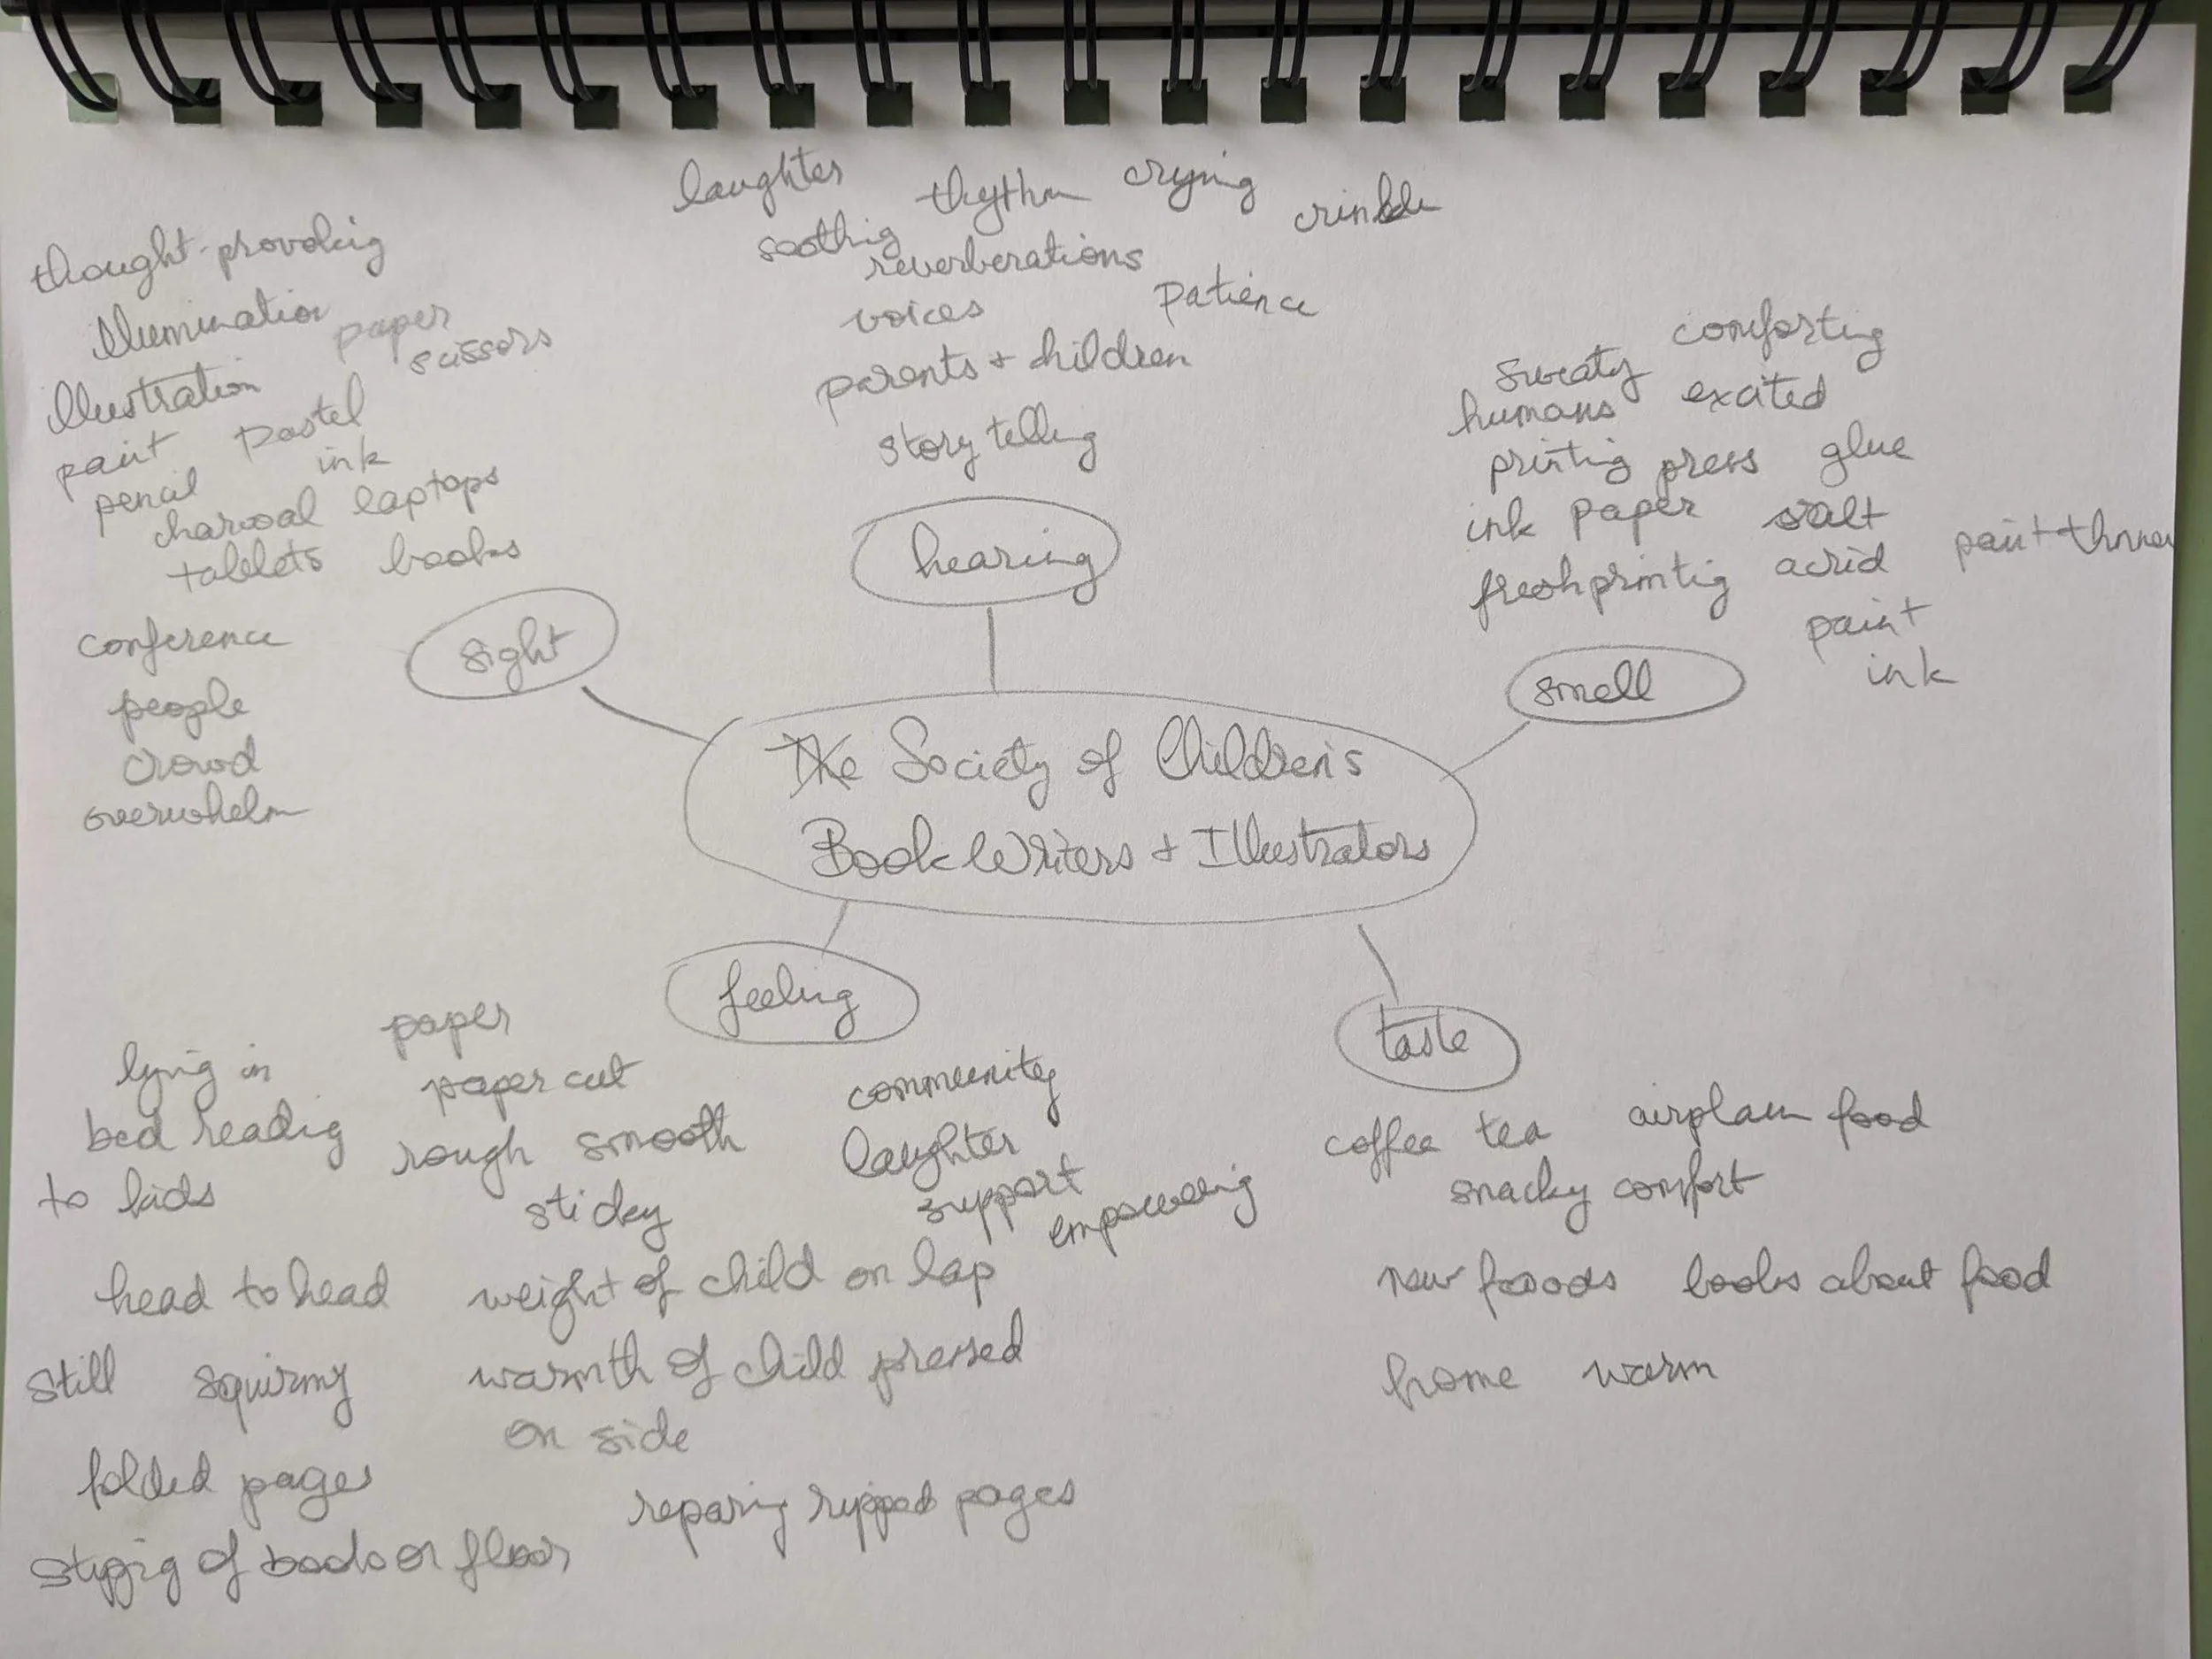 laughter rhythm crying crinkle
soothing
reverberations
voices patience
parents + children
story telling
hearing
thought-provoking
Illumination paper
scissors
illustration
paint pastel
pencil ink
charcoal laptops
tablets books
sight
conference
people
crowd
overwhelm
comforting
sweaty
humans excited
printing press glue
ink paper salt
fresh printig acrid paint thinner
paint
ink
smell
The Society of Children's
Book Writers + Illustrators
feeling
paper
paper cut
rough smooth
sticky
lying in
bed readig
to kids
community
laughter
support
empowering
head to head
weight of child on lap
still squirmy
warmth of child pressed
on side
folded pages
reparing ripped pages
of books on floor
taste
coffee tea airplane food
snacky comfort
new foods books about food
home warm